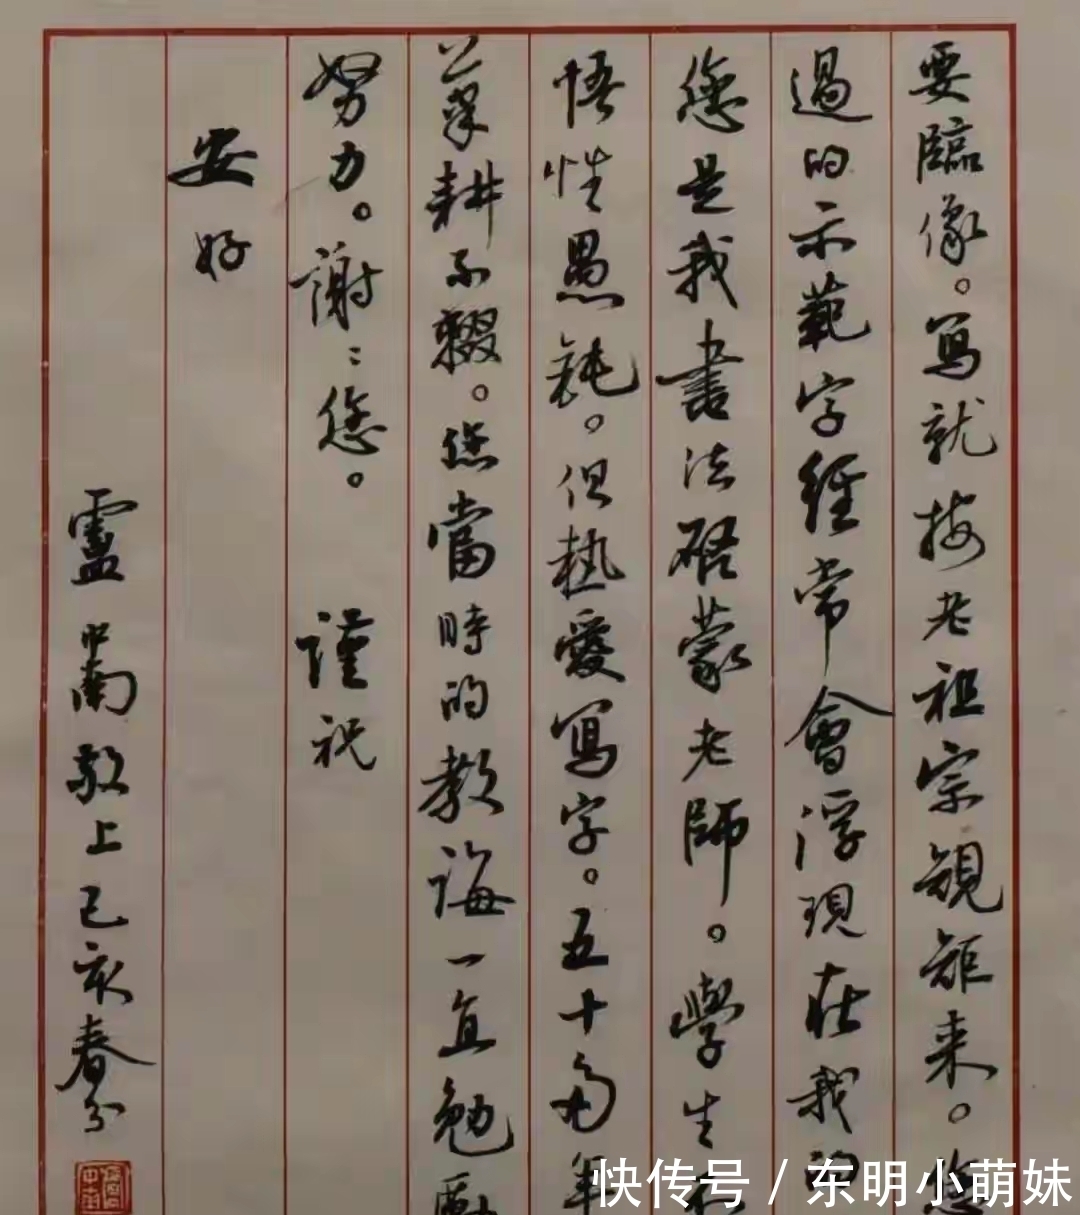 要臨像。寫就按老祖宗規矩来。您
過的示範字經常會浮現在我的
您是我書法啓蒙老師。學生
悟性愚鈍。但熱愛寫字。五十多年
筆耕不輟。您當時的教誨一直勉勵
努力。謝:您。 謹祝
安好
盧中南敬上己亥春分
快传号/东明小萌妹